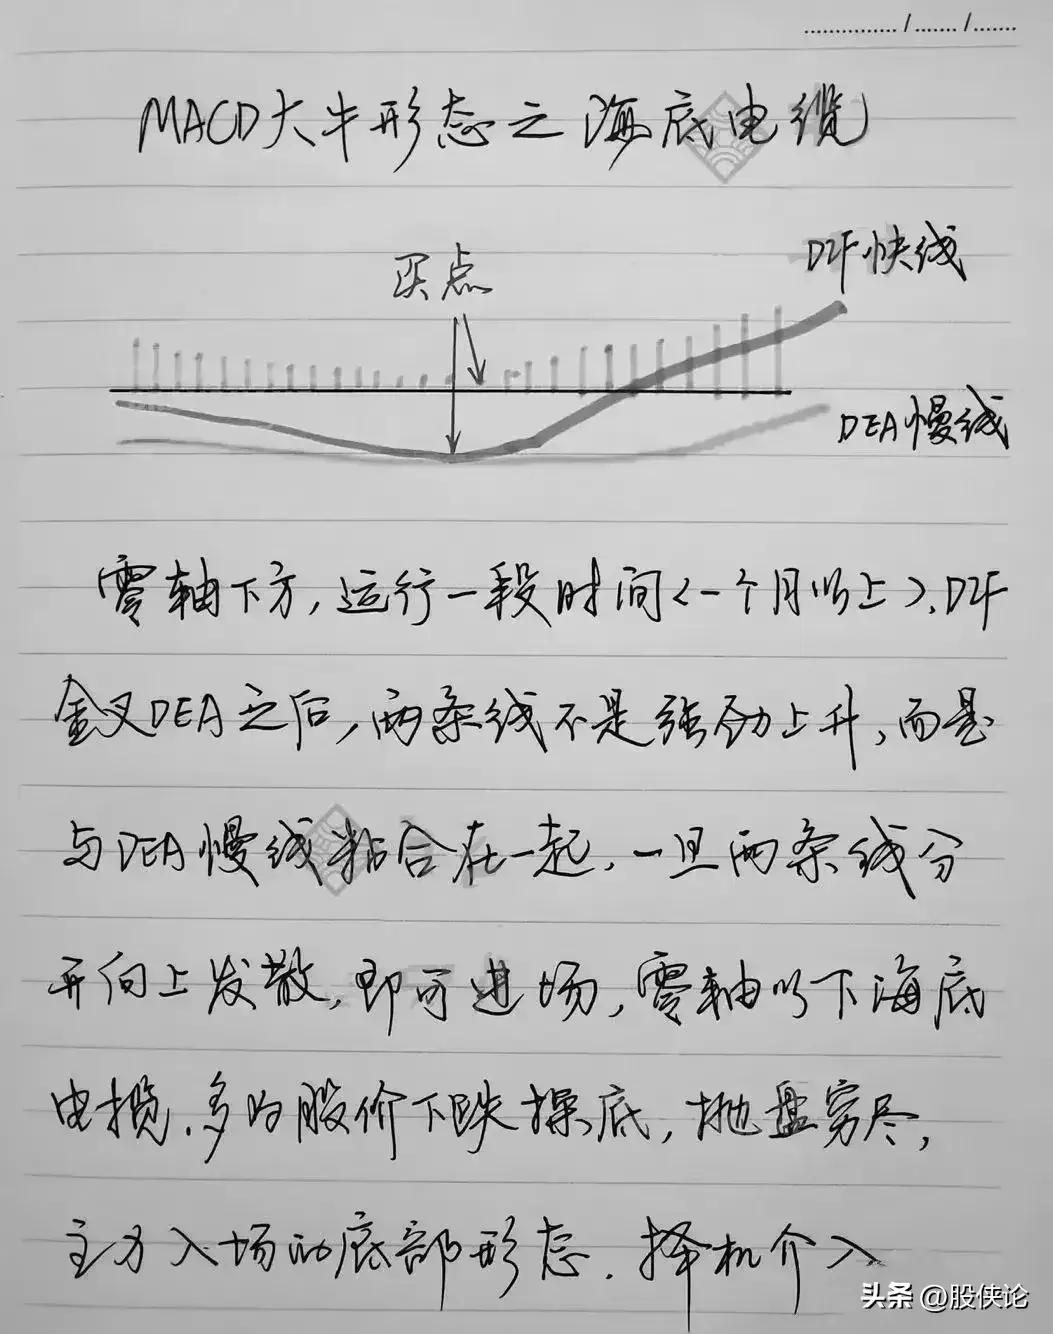 MACD大牛形态之海底电缆
DIF快线
买点
DEA慢线
零轴下方,运行一段时间<一个月以上>,DIF
金叉DEA之后,两条线不是强劲上升,而是
与DEA慢线粘合在一起,一旦两条线分
开向上发散,即可进场,零轴以下海底
电揽.多为股价下跌探底,抛盘穷尽,
主力入场的底部形态.择机介入
头条 @股侠论